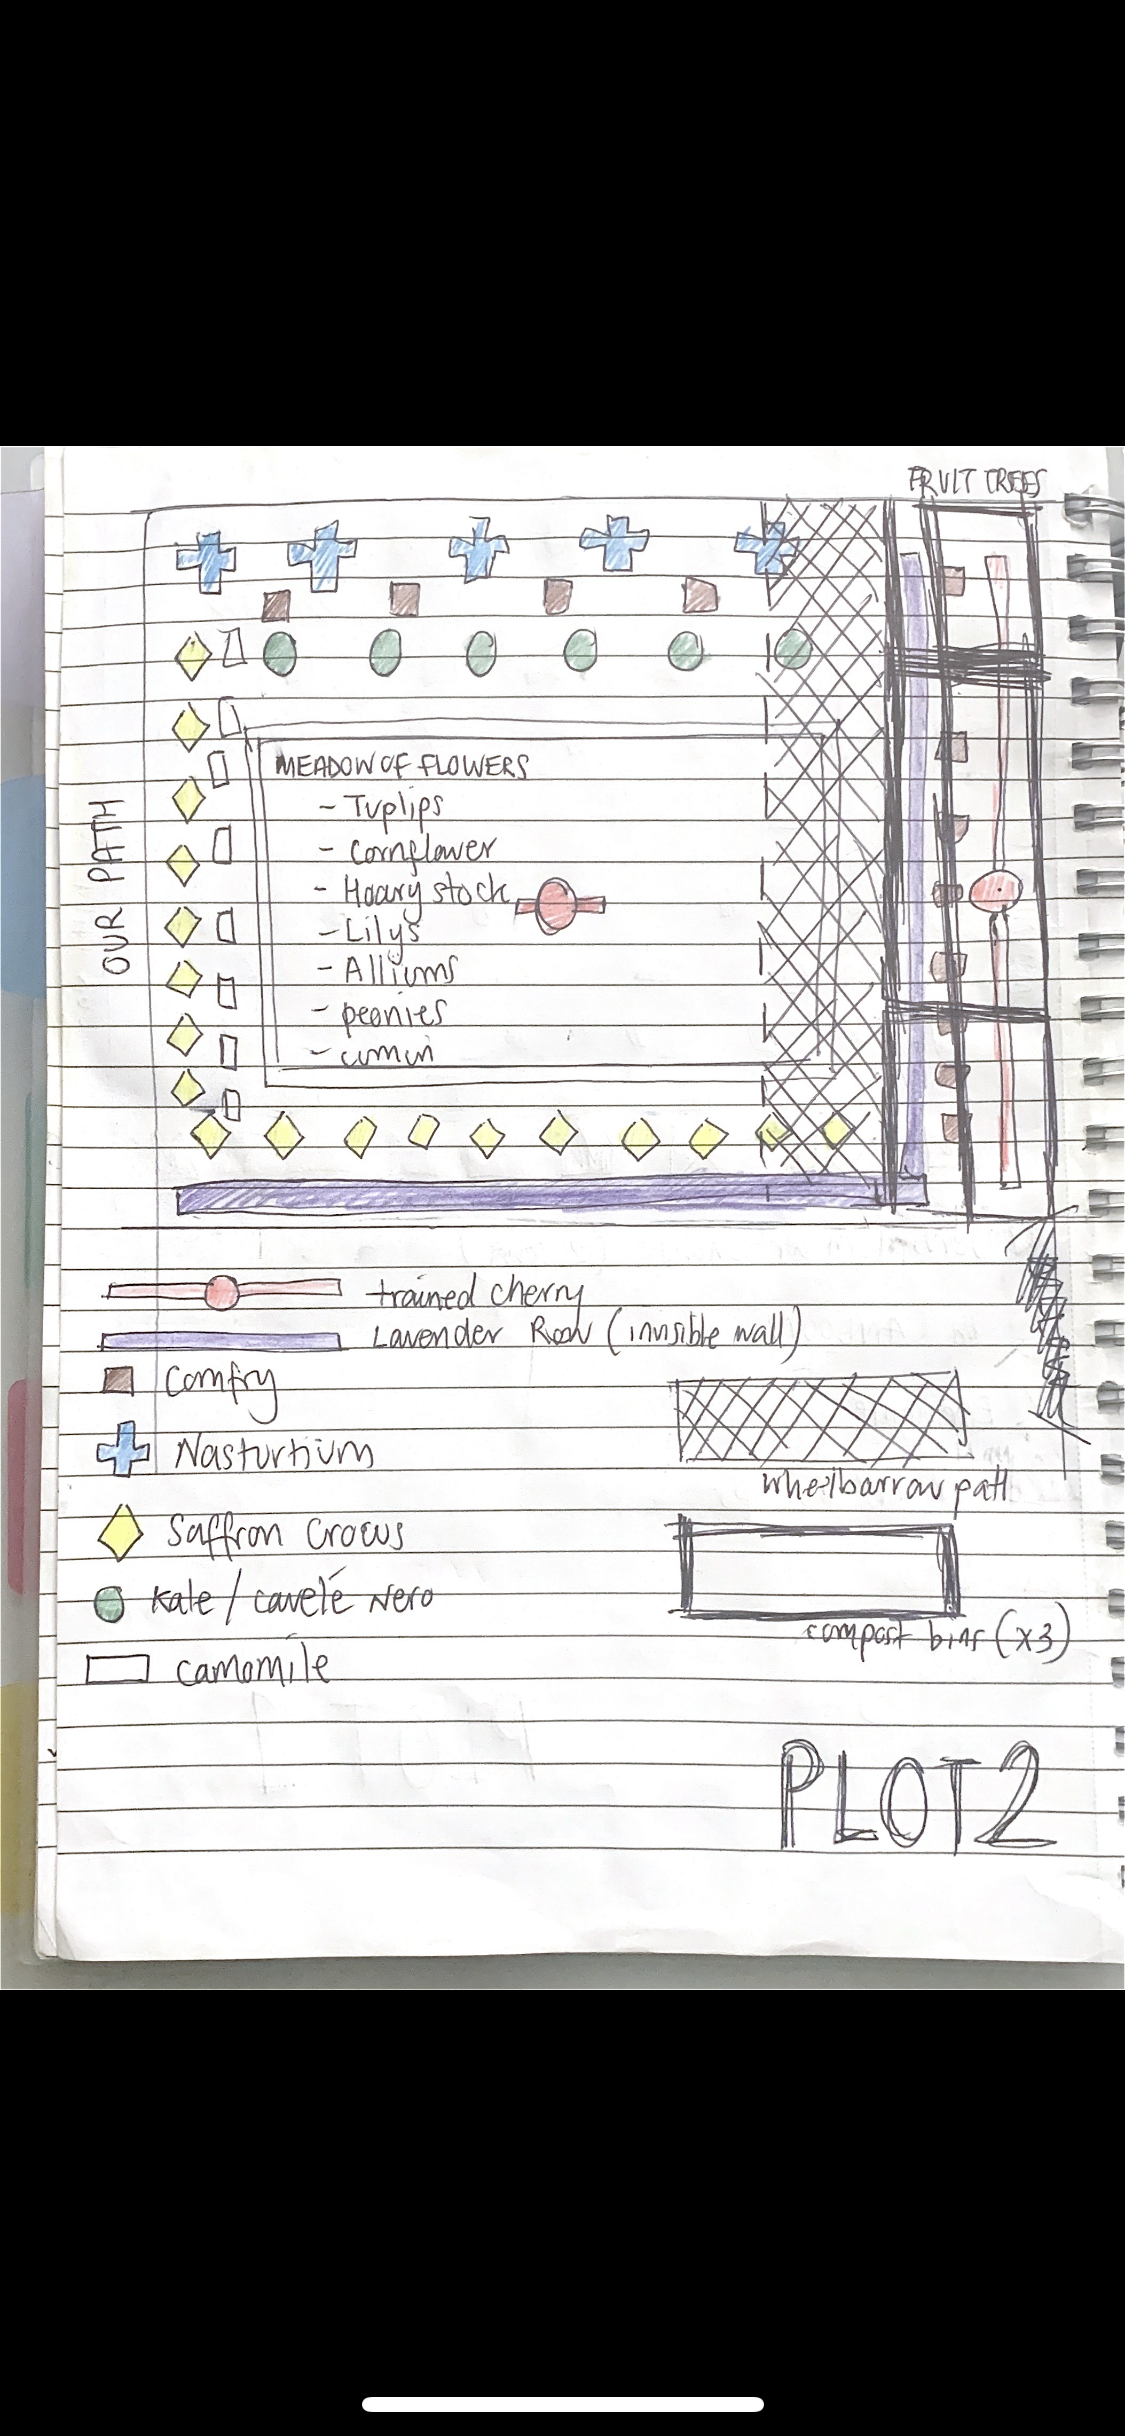 FRUIT TREES
OUR PATH
MEADOW OF FLOWERS
- Tuplips
- cornflower
- Hoary stock
- Lilys
- Alliums
- peonies
- cumin
trained cherry
Lavender Row (invisible wall)
Comfry
Nasturtium
Saffron Crocus
Kale / cavelé Nero
camomile
wheelbarrow path
compost bins (x3)
PLOT 2